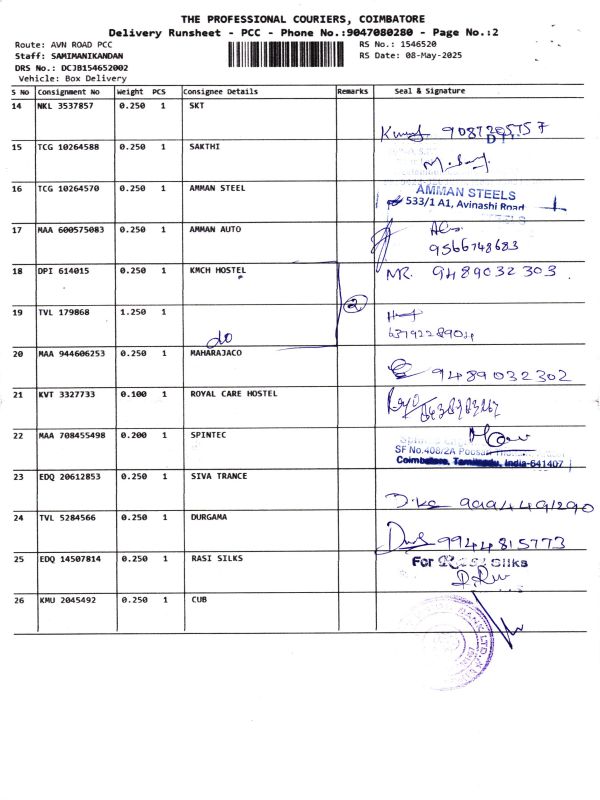 THE PROFESSIONAL COURIERS, COIMBATORE
Delivery Runsheet - PCC - Phone No.:9047080280 - Page No.:2
Route: AVN ROAD PCC RS No.: 1546520
Staff: SAMIMANIKANDAN RS Date: 08-May-2025
DRS No.: DCJB154652002
Vehicle: Box Delivery
S No Consignment No Weight PCS Consignee Details Remarks Seal & Signature
14 NKL 3537857 0.250 1 SKT
15 TCG 10264588 0.250 1 SAKTHI
16 TCG 10264570 0.250 1 AMMAN STEEL AMMAN STEELS
533/1 A1, Avinashi Road
17 MAA 600575083 0.250 1 AMMAN AUTO
9566748683
18 DPI 614015 0.250 1 KMCH HOSTEL MR. 9489032303
19 TVL 179868 1.250 1 do 2
20 MAA 944606253 0.250 1 MAHARAJACO 9489032302
21 KVT 3327733 0.100 1 ROYAL CARE HOSTEL
22 MAA 708455498 0.200 1 SPINTEC
SF No.408/2A
Coimbatore, Tamilnadu, India-641407
23 EDQ 20612853 0.250 1 SIVA TRANCE
24 TVL 5284566 0.250 1 DURGAMA 9944815773
25 EDQ 14507814 0.250 1 RASI SILKS For Rasi Silks
26 KMU 2045492 0.250 1 CUB